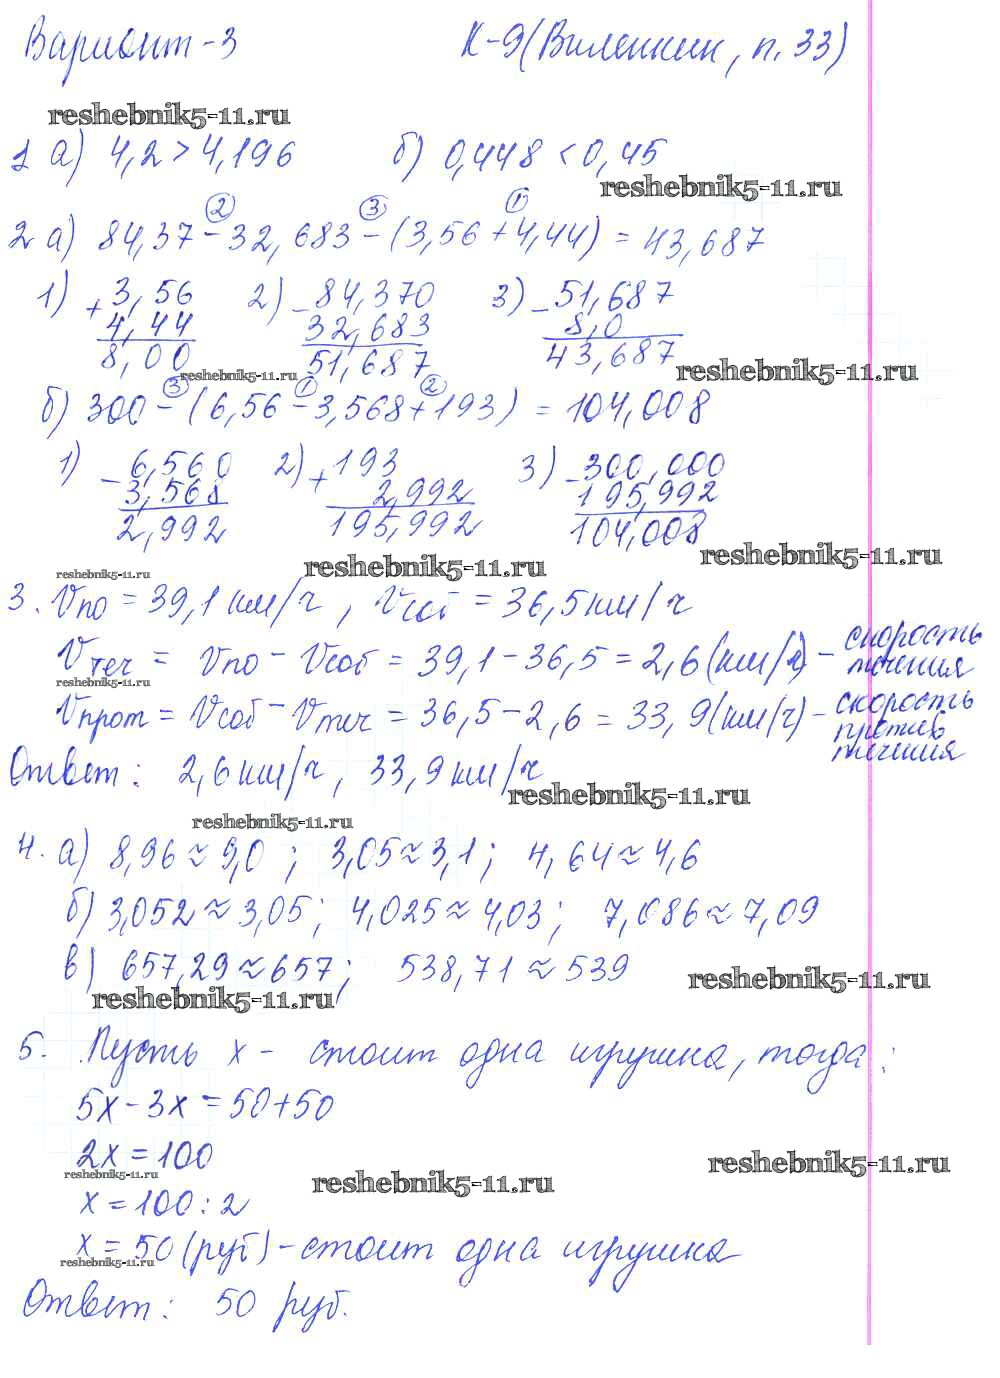 Вариант-3 К-9(Виленкин, п.33)
reshebnik5-11.ru
1 а) 4,2 > 4,196 б) 0,448 < 0,45
reshebnik5-11.ru
② ③ ①
2 а) 84,37 - 32,683 - (3,56 + 4,44) = 43,687
1) + 3,56 2) - 84,370 3) - 51,687
4,44 32,683 8,0
8,00 51,687 43,687
reshebnik5-11.ru reshebnik5-11.ru
③ ① ②
б) 300 - (6,56 - 3,568 + 193) = 104,008
1) - 6,560 2) + 193 3) - 300,000
3,568 2,992 195,992
2,992 195,992 104,008
reshebnik5-11.ru reshebnik5-11.ru reshebnik5-11.ru
3. Vпо = 39,1 км/ч, Vсоб = 36,5 км/ч
Vтеч = Vпо - Vсоб = 39,1 - 36,5 = 2,6 (км/ч) - скорость
течения
reshebnik5-11.ru
Vпрот = Vсоб - Vтеч = 36,5 - 2,6 = 33,9 (км/ч) - скорость
против
течения
Ответ: 2,6 км/ч, 33,9 км/ч
reshebnik5-11.ru
reshebnik5-11.ru
4. а) 8,96 ≈ 9,0; 3,05 ≈ 3,1; 4,64 ≈ 4,6
б) 3,052 ≈ 3,05; 4,025 ≈ 4,03; 7,086 ≈ 7,09
в) 657,29 ≈ 657; 538,71 ≈ 539
reshebnik5-11.ru reshebnik5-11.ru
5. Пусть x - стоит одна игрушка, тогда:
5x - 3x = 50 + 50
2x = 100
reshebnik5-11.ru reshebnik5-11.ru reshebnik5-11.ru
x = 100 : 2
x = 50 (руб) - стоит одна игрушка
reshebnik5-11.ru
Ответ: 50 руб.